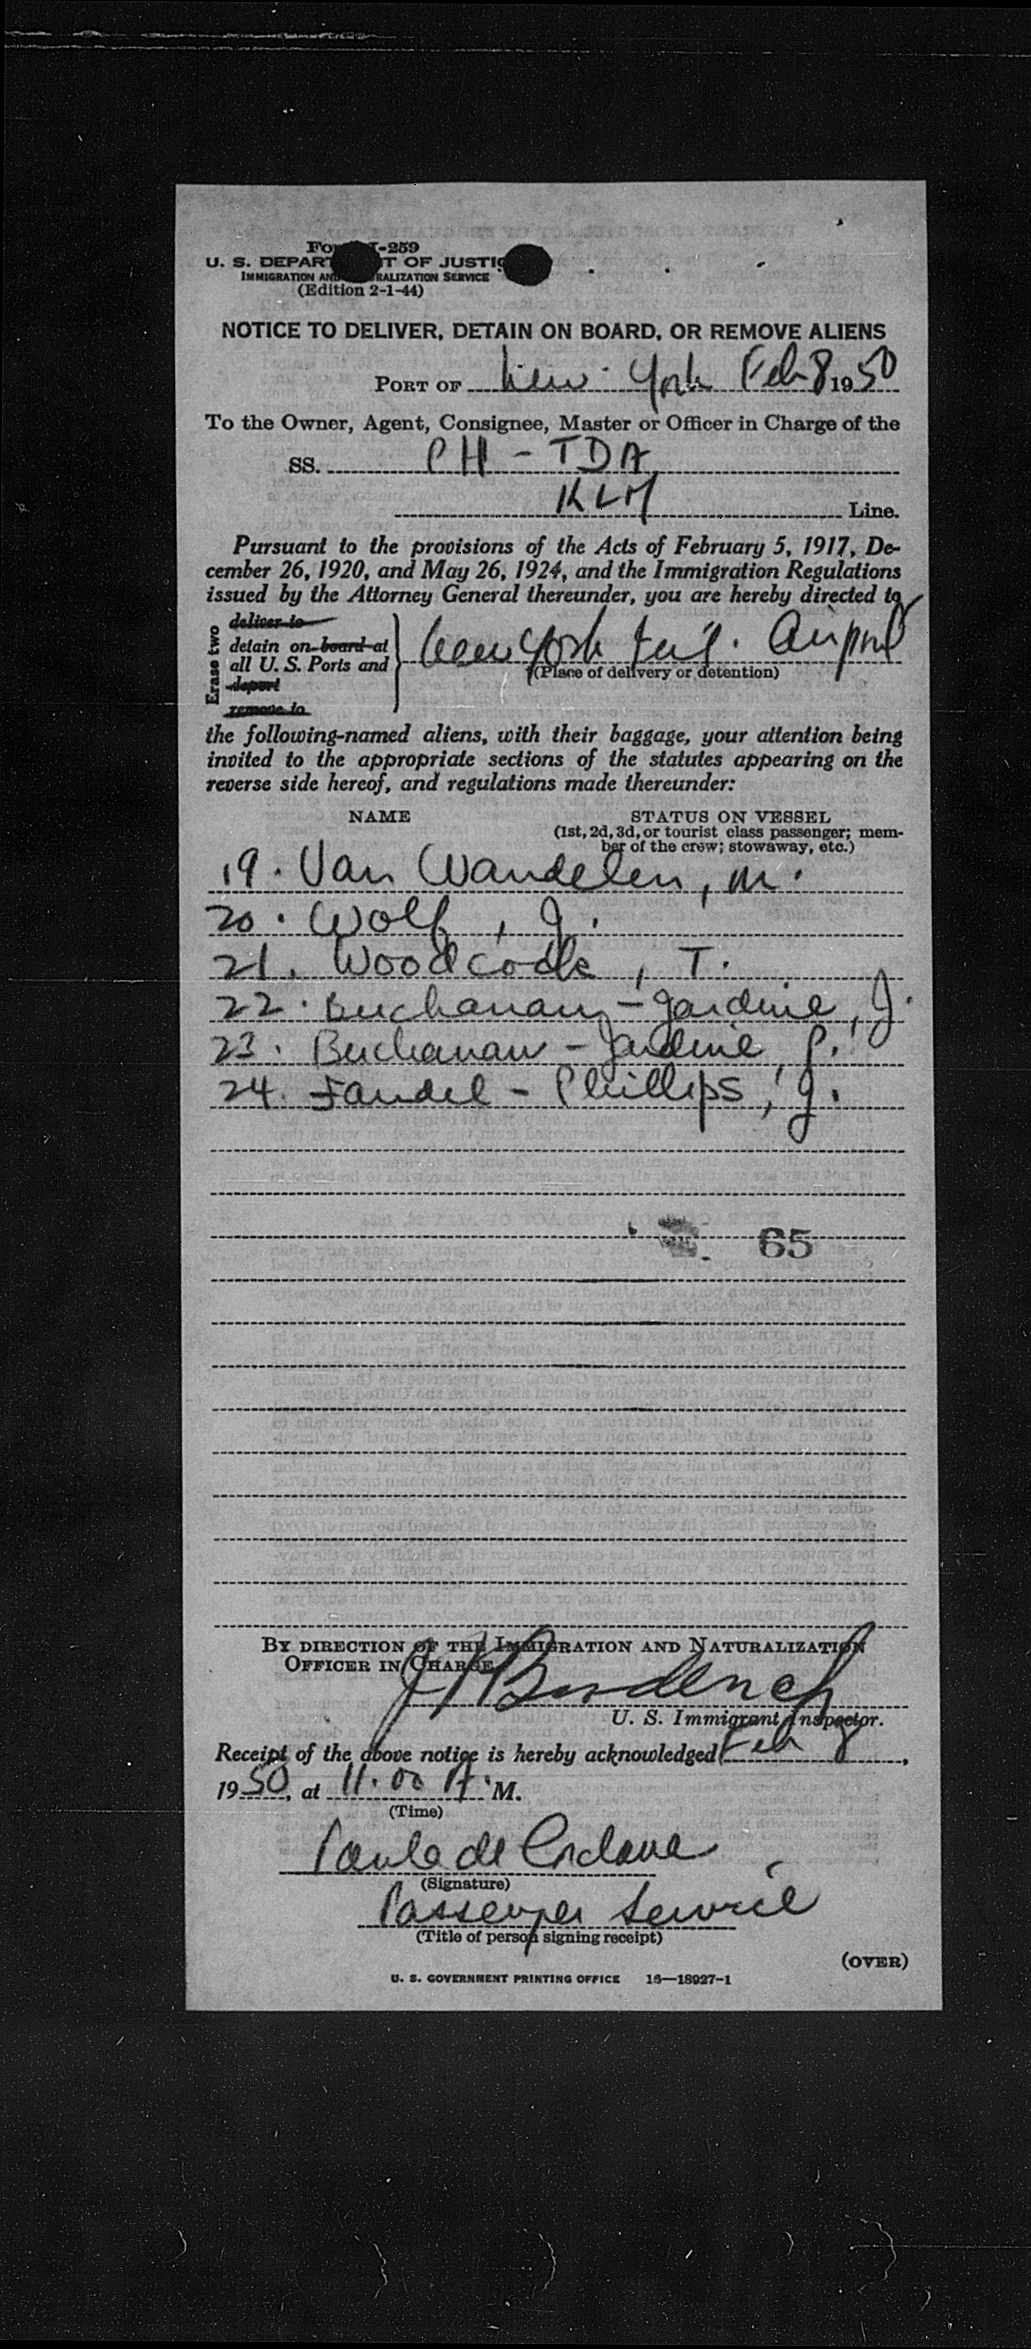 Form I-259
U. S. DEPARTMENT OF JUSTICE
IMMIGRATION AND NATURALIZATION SERVICE
(Edition 2-1-44)
NOTICE TO DELIVER, DETAIN ON BOARD, OR REMOVE ALIENS
PORT OF New York Feb 8 1950
To the Owner, Agent, Consignee, Master or Officer in Charge of the
SS. PH - TDA
KLM Line.
Pursuant to the provisions of the Acts of February 5, 1917, De-
cember 26, 1920, and May 26, 1924, and the Immigration Regulations
issued by the Attorney General thereunder, you are hereby directed to
Erase two
deliver to
detain on board at
all U. S. Ports and
deport
remove to
New York Int'l. Airport
(Place of delivery or detention)
the following-named aliens, with their baggage, your attention being
invited to the appropriate sections of the statutes appearing on the
reverse side hereof, and regulations made thereunder:
NAME STATUS ON VESSEL
(1st, 2d, 3d, or tourist class passenger; mem-
ber of the crew; stowaway, etc.)
19. Van Wandelen, M.
20. Wolf, J.
21. Woodcock, T.
22. Buchanan - Jardine, J.
23. Buchanan - Jardine, P.
24. Faudel - Phillips, J.
65
BY DIRECTION OF THE IMMIGRATION AND NATURALIZATION
OFFICER IN CHARGE
U. S. Immigrant Inspector.
Receipt of the above notice is hereby acknowledged Feb 8,
1950, at 11.00 A. M.
(Time)
(Signature)
Passenger Service
(Title of person signing receipt)
(OVER)
U. S. GOVERNMENT PRINTING OFFICE 16—18927-1